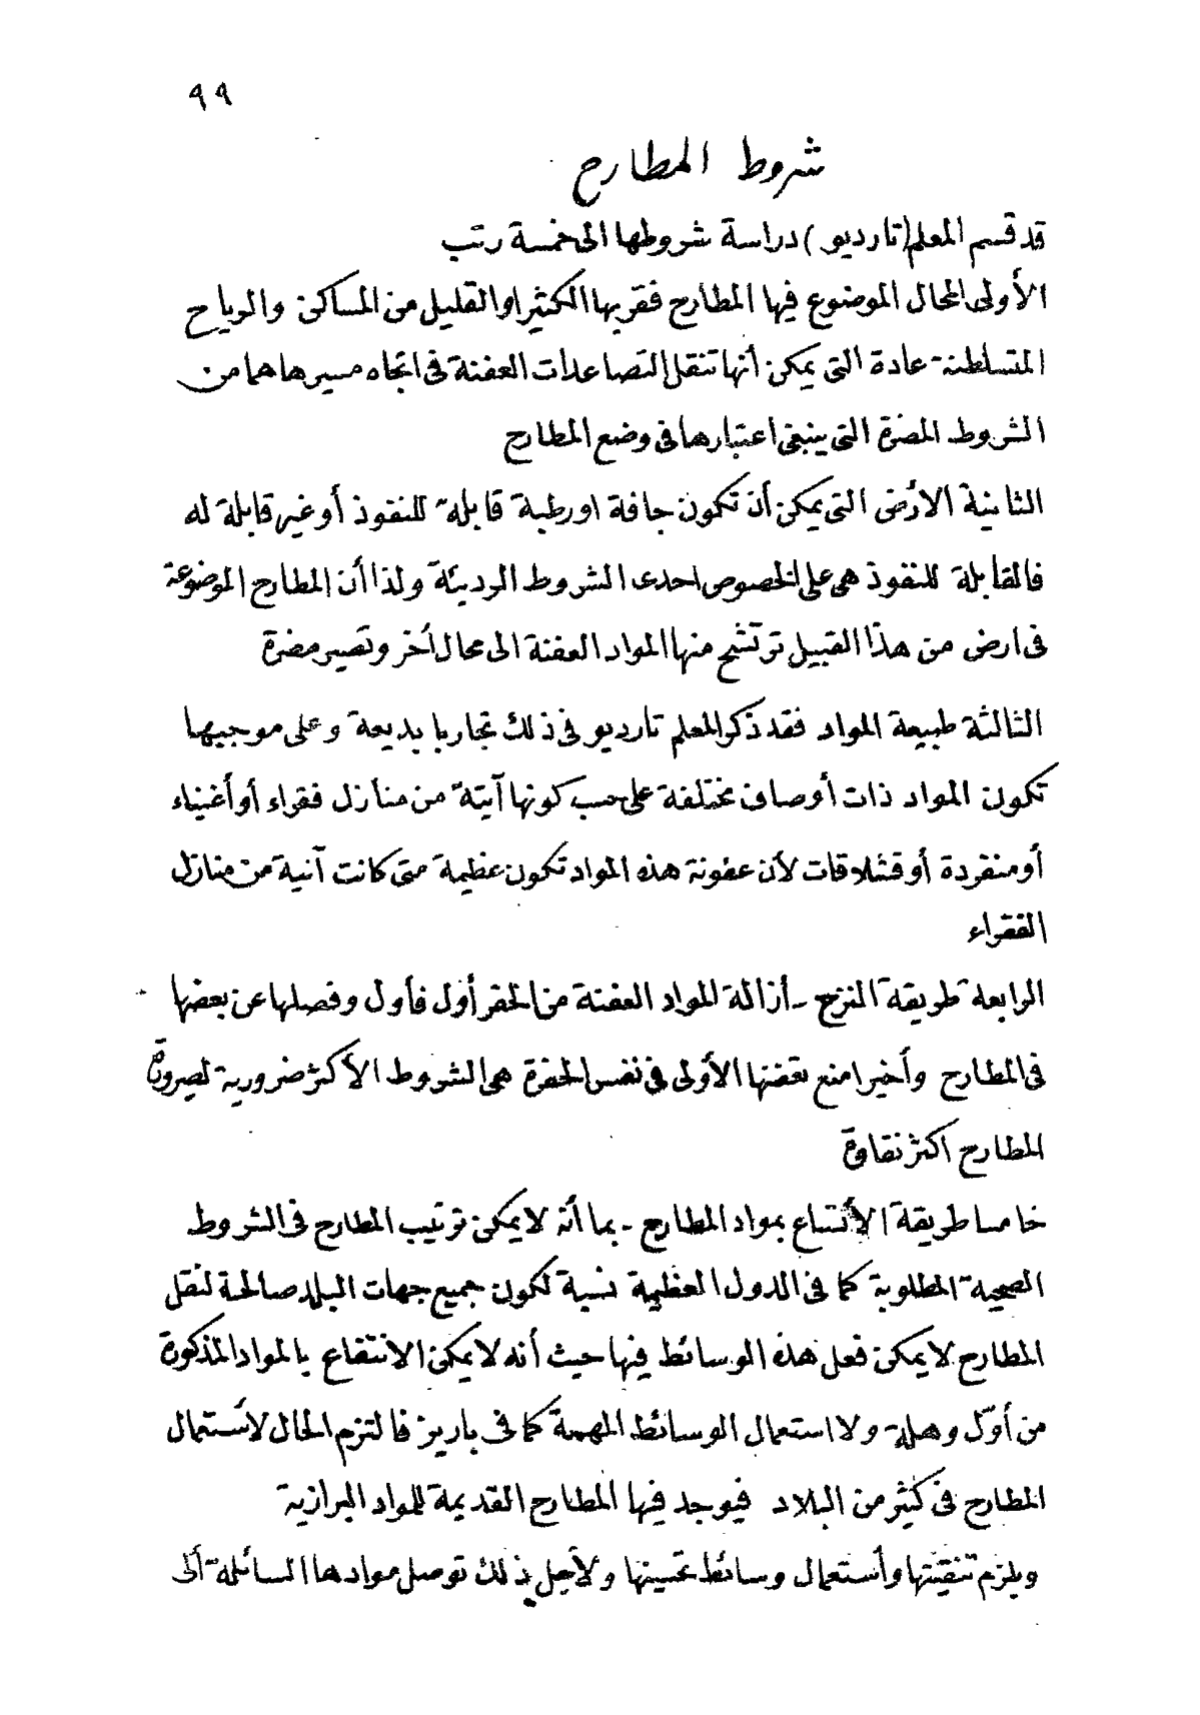 ٩٩
شروط المطارح
قد قسم المعلم (تارديو) دراسة شروطها الى خمسة رتب
الأولى المحال الموضوع فيها المطارح فقربها الكثير او القليل من المساكن والرياح
المتسلطنة عادة التى يمكن أنها تنقل التصاعدات العفنة فى اتجاه مسيرها هما من
الشروط المضرة التى ينبغى اعتبارها فى وضع المطارح
الثانية الارض التى يمكن أن تكون جافة او رطبة قابلة للنفوذ أو غير قابلة له
فالقابلة للنفوذ هى على الخصوص احدى الشروط الرديئة ولذا أن المطارح الموضوعة
فى ارض من هذا القبيل ترتشح منها المواد العفنة الى محال أخر وتصير مضرة
الثالثة طبيعة المواد فقد ذكر المعلم تارديو فى ذلك تجاربا بديعة وعلى موجبها
تكون المواد ذات أوصاف مختلفة على حسب كونها آيتة من منازل فقراء أو أغنياء
أو منفردة أو قشلاقات لأن عفونة هذه المواد تكون عظيمة متى كانت آنية من منازل
الفقراء
الرابعة طريقة النزح - أزالة المواد العفنة من الحفر أول فأول وفصلها عن بعضها
فى المطارح وأخيرا منع تعفنها الأولى فى نفس الحفرة هى الشروط الأكثر ضرورية لصيرورة
المطارح اكثر نقاوة
خامسا طريقة الأنتفاع بمواد المطارح - بما أنه لا يمكن ترتيب المطارح فى الشروط
الصحية المطلوبة كما فى الدول العظيمة نسبة لكون جميع جهات البلد صالحة لنقل
المطارح لا يمكن فعل هذه الوسائط فيها حيث أنه لا يمكن الانتفاع بالمواد المذكورة
من أوّل وهلة ولا استعمال الوسائط المهمة كما فى باريز فالتزم الحال لأستعمال
المطارح فى كثير من البلاد فيوجد فيها المطارح القديمة للمواد البرازية
ويلزم تنقيتها وأستعمال وسائط تحسينها ولأجل ذلك توصل موادها السائلة ألى